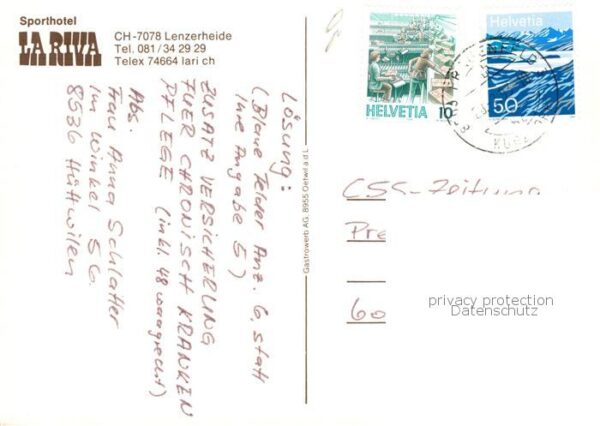 Sporthotel
LA RIVA
CH-7078 Lenzerheide
Tel. 081/34 29 29
Telex 74664 lari ch
Lösung:
(Blaue Felder Anz. 6, statt
Ihre Angabe 5)
ZUSATZ VERSICHERUNG
FUER CHRONISCH KRANKEN
PFLEGE (inkl. 48 waagrecht)
Abs:
Frau Anna Schlatter
Im Winkel 56
8536 Hüttwilen
Gastrowerb AG, 8955 Oetwil a.d.L.
HELVETIA 10
Helvetia
50
CSS-Zeitung
Pre
60
privacy protection
Datenschutz